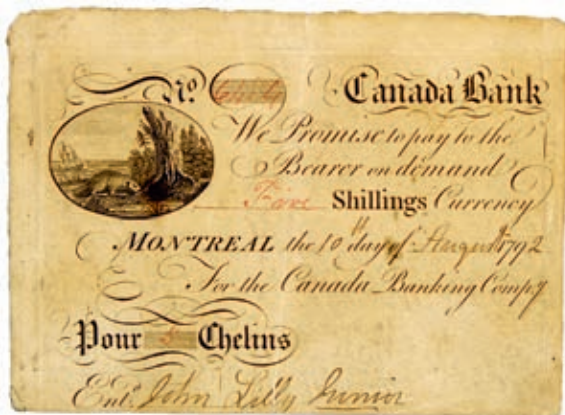 No. Canada Bank
We Promise to pay to the
Bearer on demand
Five Shillings Currency
MONTREAL the 10th day of August 1792
For the Canada Banking Compy
Pour 5 Chelins
Entd. John Lilly Junior